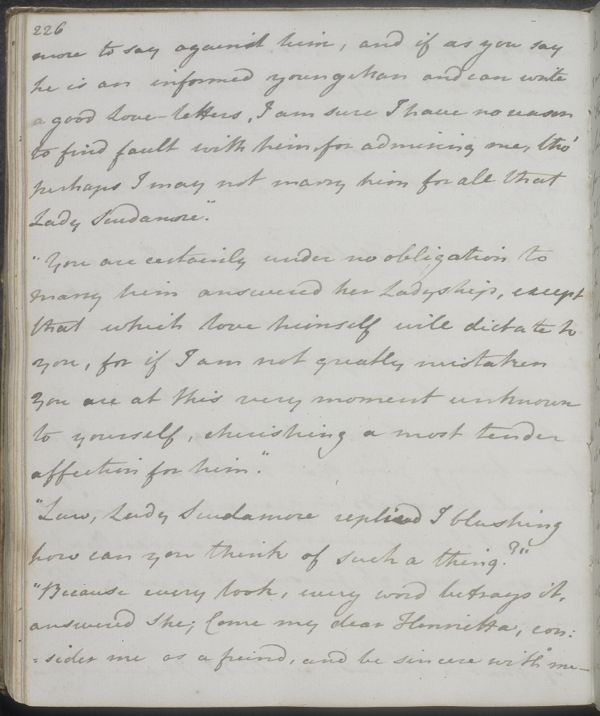 226
more to say against him, and if as you say
he is an informed young Man and can write
a good Love-letters, I am sure I have no reason
to find fault with him for admiring me, tho'
perhaps I may not marry him for all that
Lady Scudamore."
"You are certainly under no obligation to
marry him answered her Ladyship, except
that which love himself will dictate to
you, for if I am not greatly mistaken
you are at this very moment unknown
to yourself, cherishing a most tender
affection for him."
"Law, Lady Scudamore replied I blushing
how can you think of such a thing?"
"Because every look, every word betrays it,
answered She; Come my dear Henrietta, con:
=sider me as a freind, and be sincere with me—